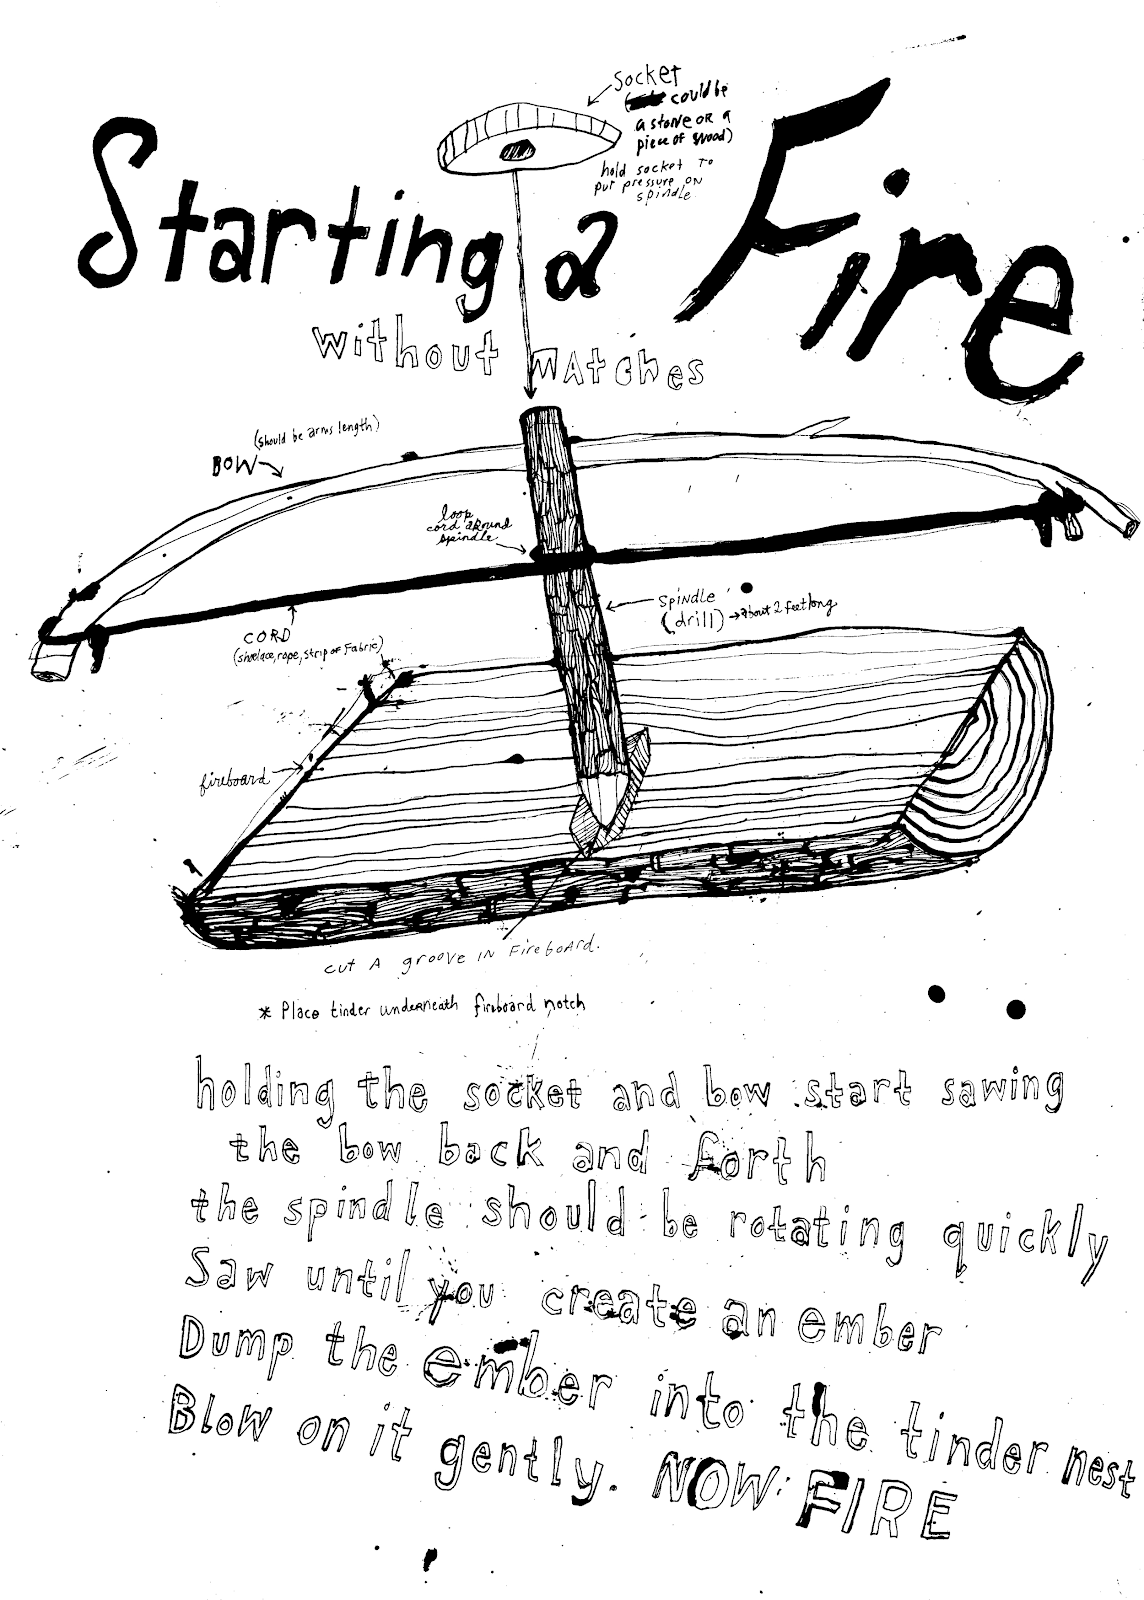 Socket
(could be
a stone OR a
piece of wood)
hold socket to
put pressure on
spindle
Starting a Fire
without matches
(should be arms length)
BOW
loop
cord around
spindle
SPINDLE
(drill) → about 2 feet long
CORD
(shoelace, rope, strip of Fabric)
fireboard
cut A groove IN Fireboard.
* Place tinder underneath fireboard notch
holding the socket and bow start sawing
the bow back and forth
the spindle should be rotating quickly
Saw until you create an ember
Dump the ember into the tinder nest
Blow on it gently. NOW FIRE